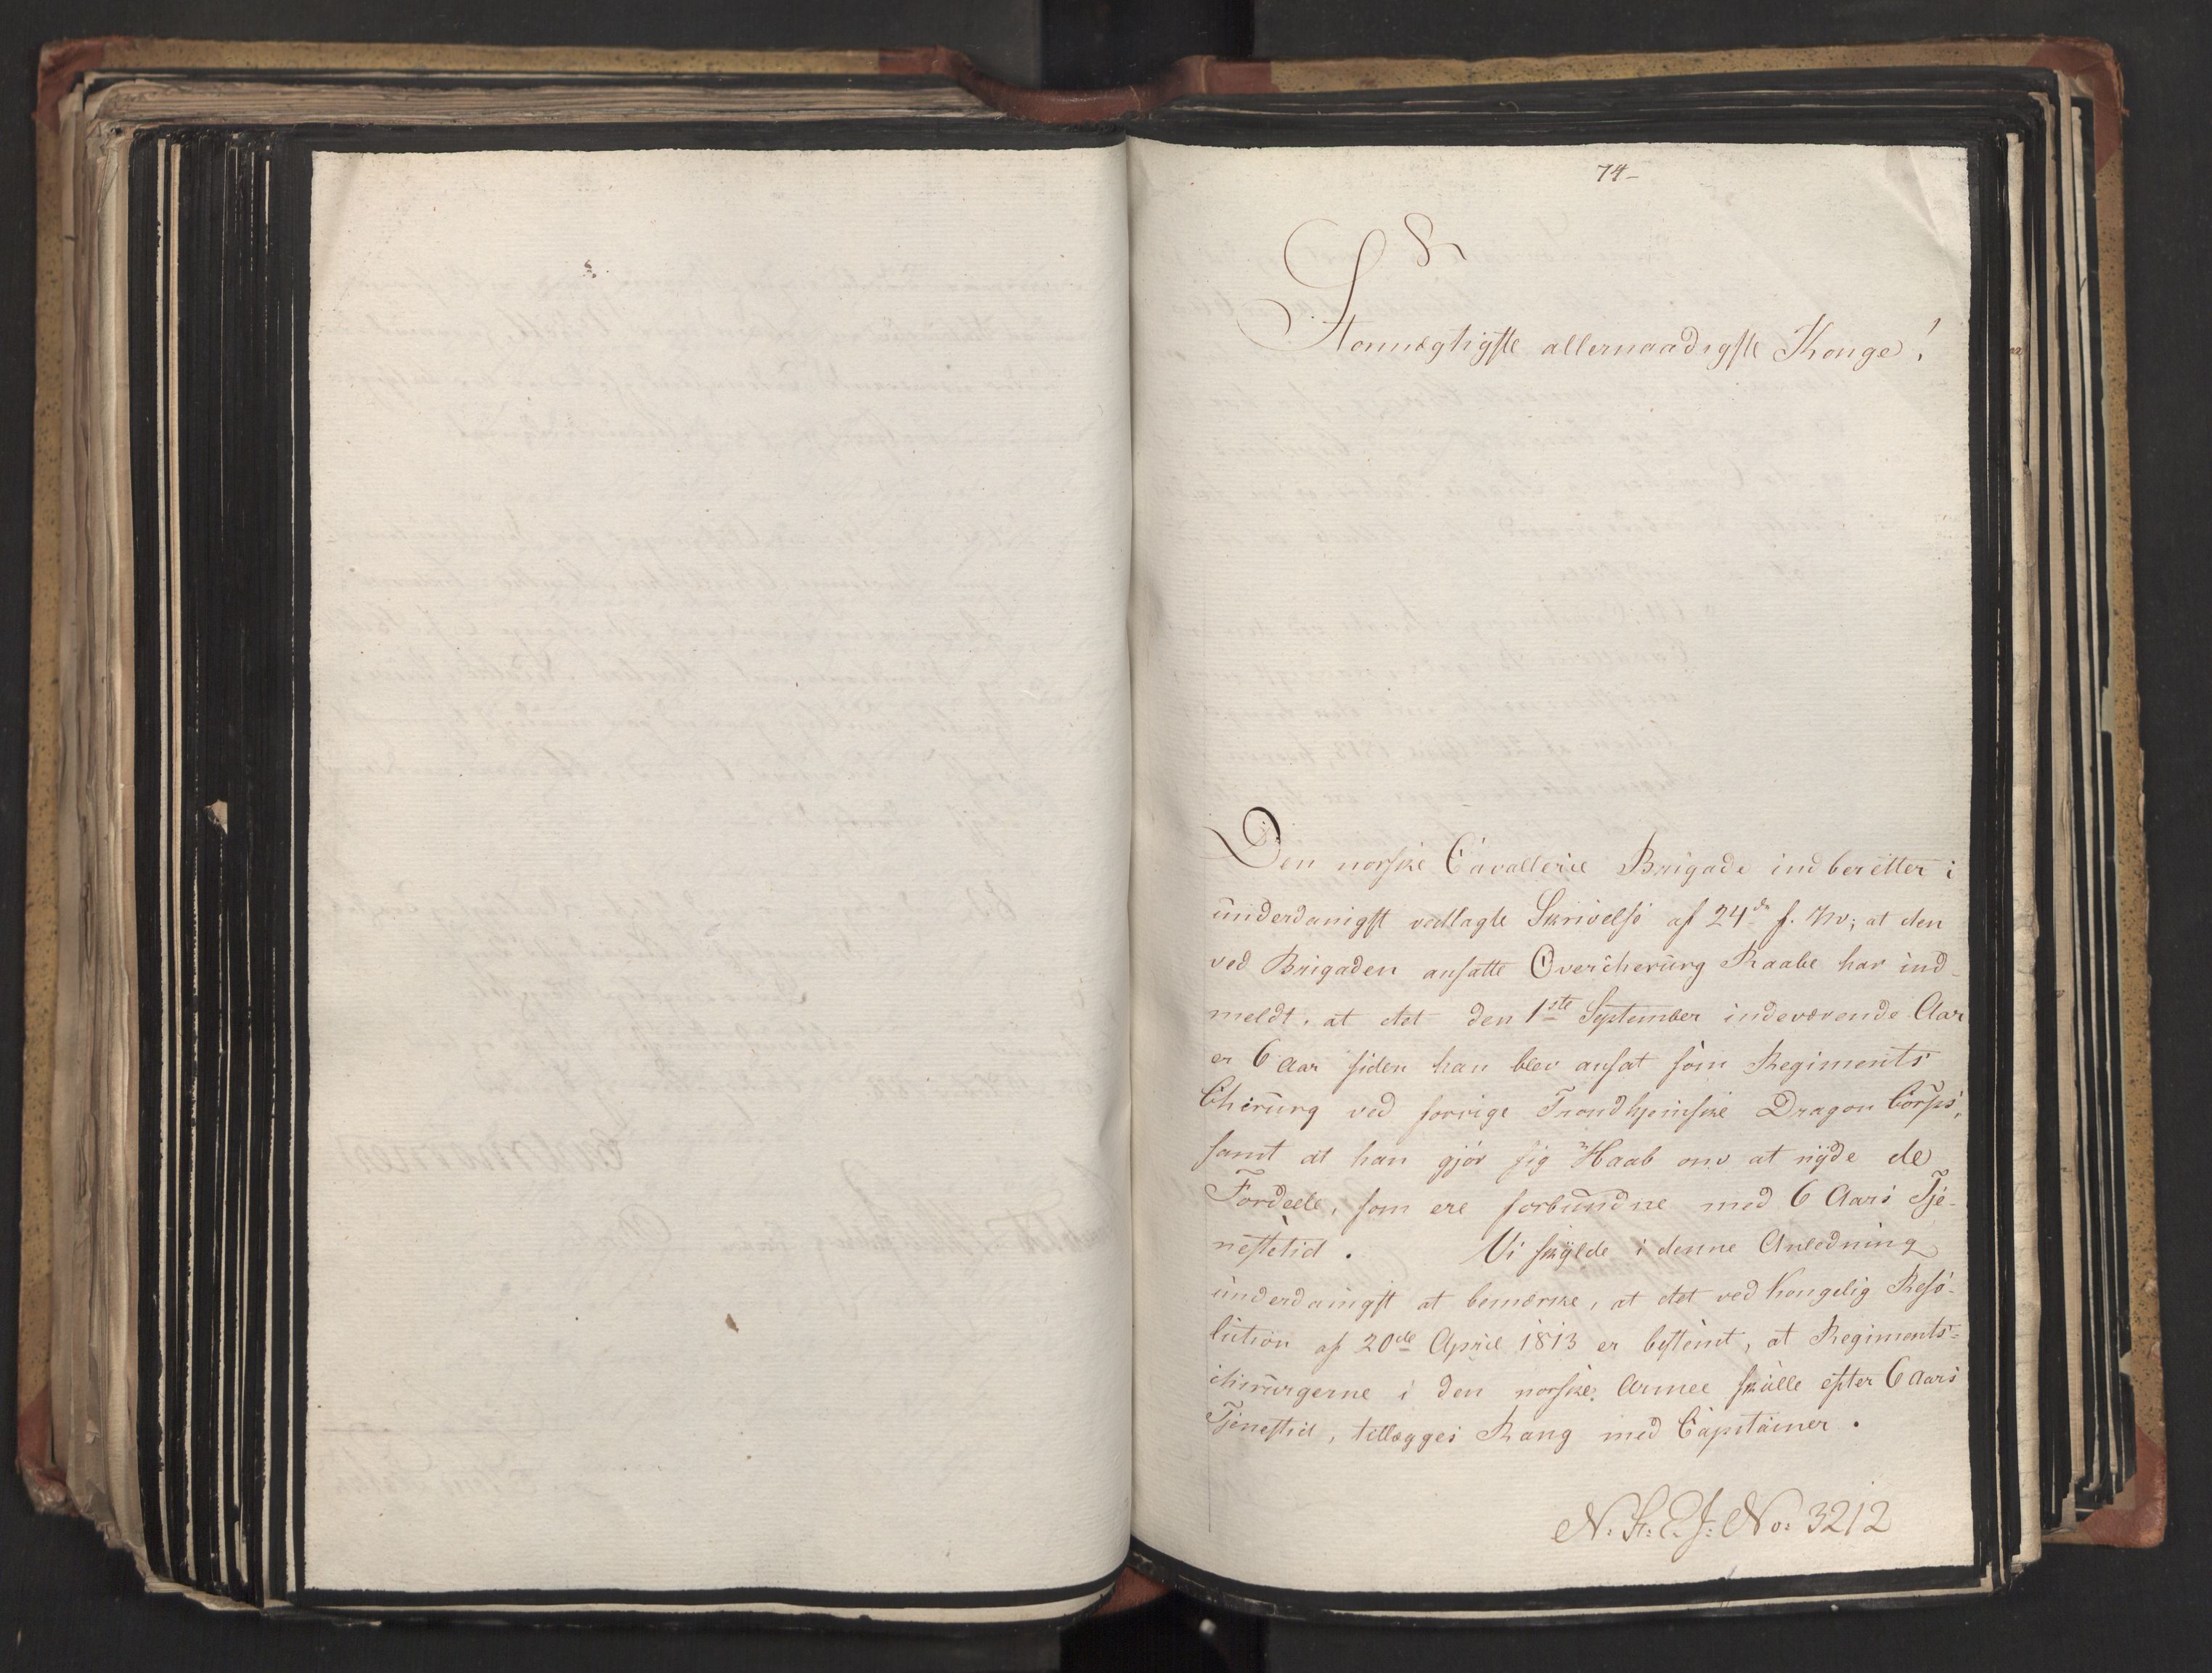 74-
Stormægtigste allernaadigste Konge!
Den norske Cavallerie Brigade indberetter i
underdanigst vedlagte Skrivelse af 24de f. M; at den
ved Brigaden ansatte Overcherurg Raabe har ind-
meldt, at det den 1ste September indeværende Aar
er 6 Aar siden han blev ansat som Regiments
Cherurg ved forrige Trondhjemske Dragon Corps,
samt at han gjør sig Haab om at nyde de
Fordeele, som ere forbundne med 6 Aars Tje-
nestetid. Vi skylde i denne Anledning
underdanigst at bemærke, at det ved Kongelig Reso-
lution af 20de April 1813 er bestemt, at Regiments-
chirurgerne i den norske Armee skulle efter 6 Aars
Tjenestid, tillægges Rang med Capitainer.
N. St. E. J: No: 3212